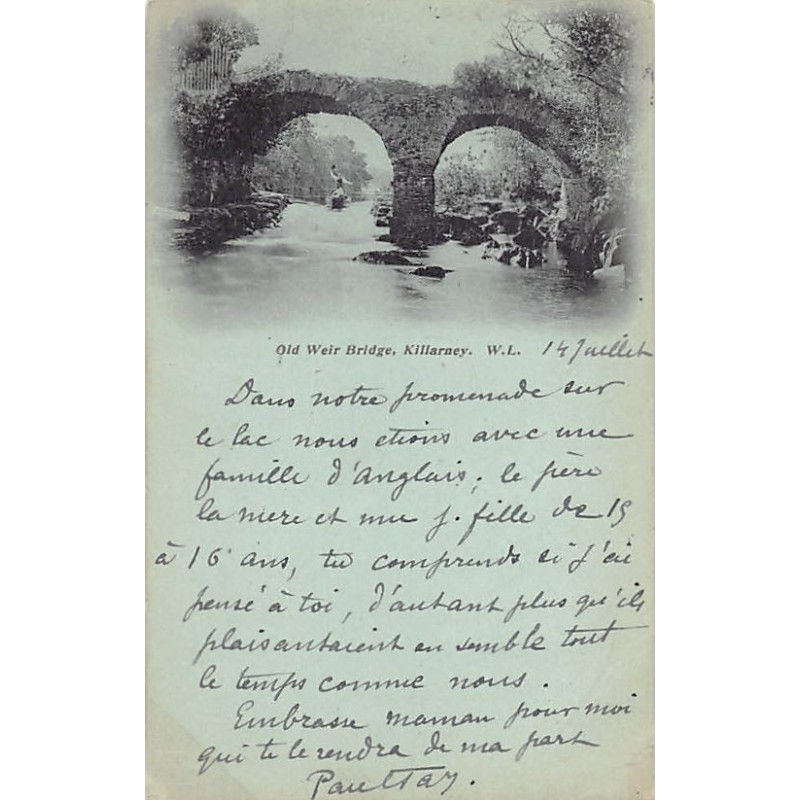 Old Weir Bridge, Killarney. W.L. 14 Juillet
Dans notre promenade sur
le lac nous etions avec une
famille d'Anglais; le père
la mere et une j. fille de 15
à 16 ans, tu comprends si j'ai
pensé à toi, d'autant plus qu'ils
plaisantaient en semble tout
le temps comme nous.
Embrasse maman pour moi
qui te le rendra de ma part